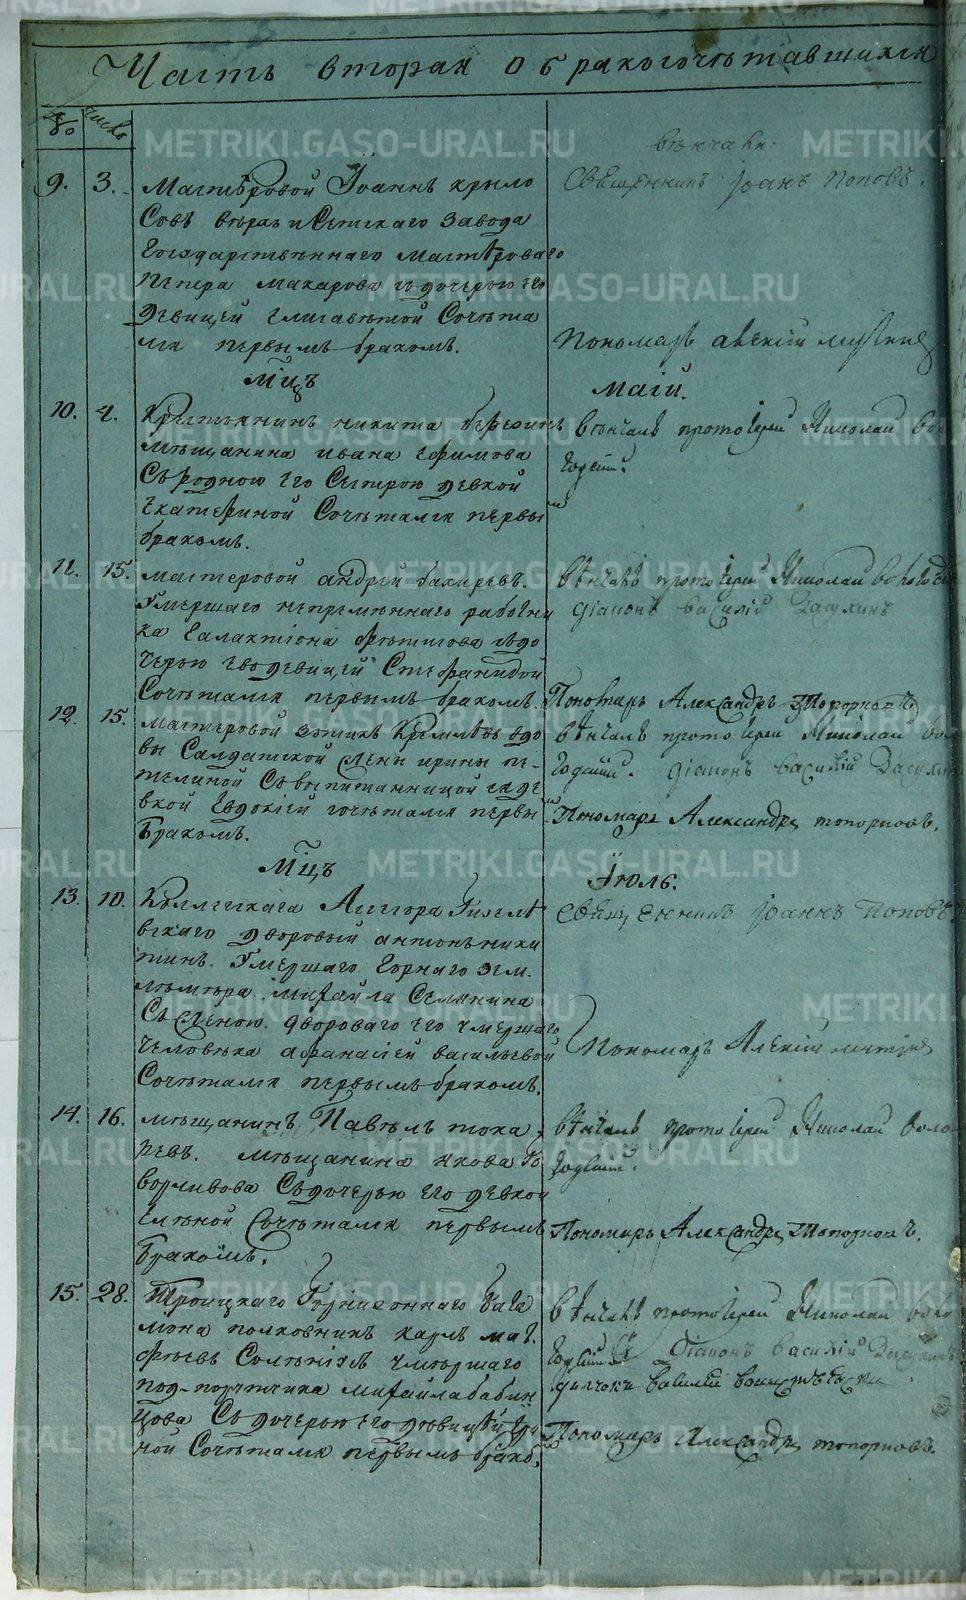 Часть вторая о бракосочетавшихся
№ число
венчали:
9. 3. Мастеровой Иоаннъ крыло
совъ верхъ исетскаго завода
Государственнаго мастероваго
Петра Макарова съ дочерью его
девицей Елисаветой Сочета
лся первымъ бракомъ.
Священникъ Иоанъ Поповъ.
Пономарь Алексий
Мцъ Маій.
10. 4. Крестьянинъ никита березинъ
мещанина ивана Ефимова
Съ родною его Сестрою девкой
Екатериной Сочетался первы
бракомъ.
венчалъ протоіерей Николай
11. 15. мастеровой андрей бахиревъ.
Умершаго непременнаго работни
ка Галактіона съ до
черью его девицей Стефанидой
Сочетался первымъ бракомъ.
венчалъ протоіерей Николай
діаконъ василій
Пономарь Александръ Топорковъ
12. 15. мастеровой зотикъ вдо
вы Салдатской жены ирины пе-
телиной Съ воспитанницой ея де
вкой Евдокіей сочетался первы
Бракомъ.
венчалъ протоіерей Николай
діаконъ василій
Пономарь Александръ топорковъ.
Мцъ Іюль.
13. 10. Коллежскаго Ассесора
вскаго дворовый антонъ ники
тинъ. Умершаго Горнаго зем.
лемера михаила Селянина
Съ женою двороваго его умершаго
человека афанасіей васильевой
Сочетался первымъ бракомъ.
Священникъ Иоаннъ Поповъ
Пономарь Алексий
14. 16. мещанинъ Павелъ тока
ревъ. мещанина якова Го
ворливова Съ дочерью его девкой
Еленой Сочетался первымъ
бракомъ.
венчалъ протоіерей Николай
Пономарь Александръ Топорковъ.
15. 28. Троицкаго Гарнизоннаго бата
лиона полковникъ карлъ мат.
феевъ умершаго
под-порутчика михайла бабин
цова Съ дочерью его девицей
ной Сочетался первымъ брако.
венчалъ протоіерей Николай
діаконъ василій
Пономарь Александръ топорковъ
METRIKI.GASO-URAL.RU